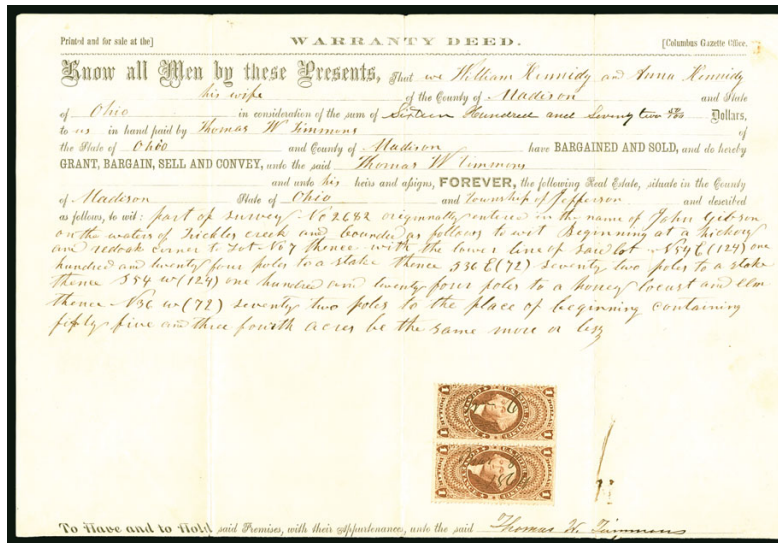 Printed and for sale at the] WARRANTY DEED. [Columbus Gazette Office.
Know all Men by these Presents, That we William Kennidy and Anna Kennidy
his wife of the County of Madison and State
of Ohio in consideration of the sum of Sixteen Hundred and Seventy two Dollars,
to us in hand paid by Thomas W Timmons of
the State of Ohio and County of Madison have BARGAINED AND SOLD, and do hereby
GRANT, BARGAIN, SELL AND CONVEY, unto the said Thomas W Timmons
and unto his heirs and assigns, FOREVER, the following Real Estate, situate in the County
of Madison State of Ohio and Township of Jefferson and described
as follows, to wit: part of survey No 2682 originally entered in the name of John Gibson
on the waters of creek and bounded as follows to wit Beginning at a hickory
and redoak corner to Lot No 7 thence with the lower line of said lot N54E (124) one
hundred and twenty four poles to a stake thence S36 E (72) seventy two poles to a stake
thence S54 w (124) one hundred and twenty four poles to a honey locust and elm
thence N36 w (72) seventy two poles to the place of beginning containing
fifty five and three fourth acres be the same more or less
To Have and to Hold said Premises, with their Appurtenances, unto the said Thomas W. Timmons